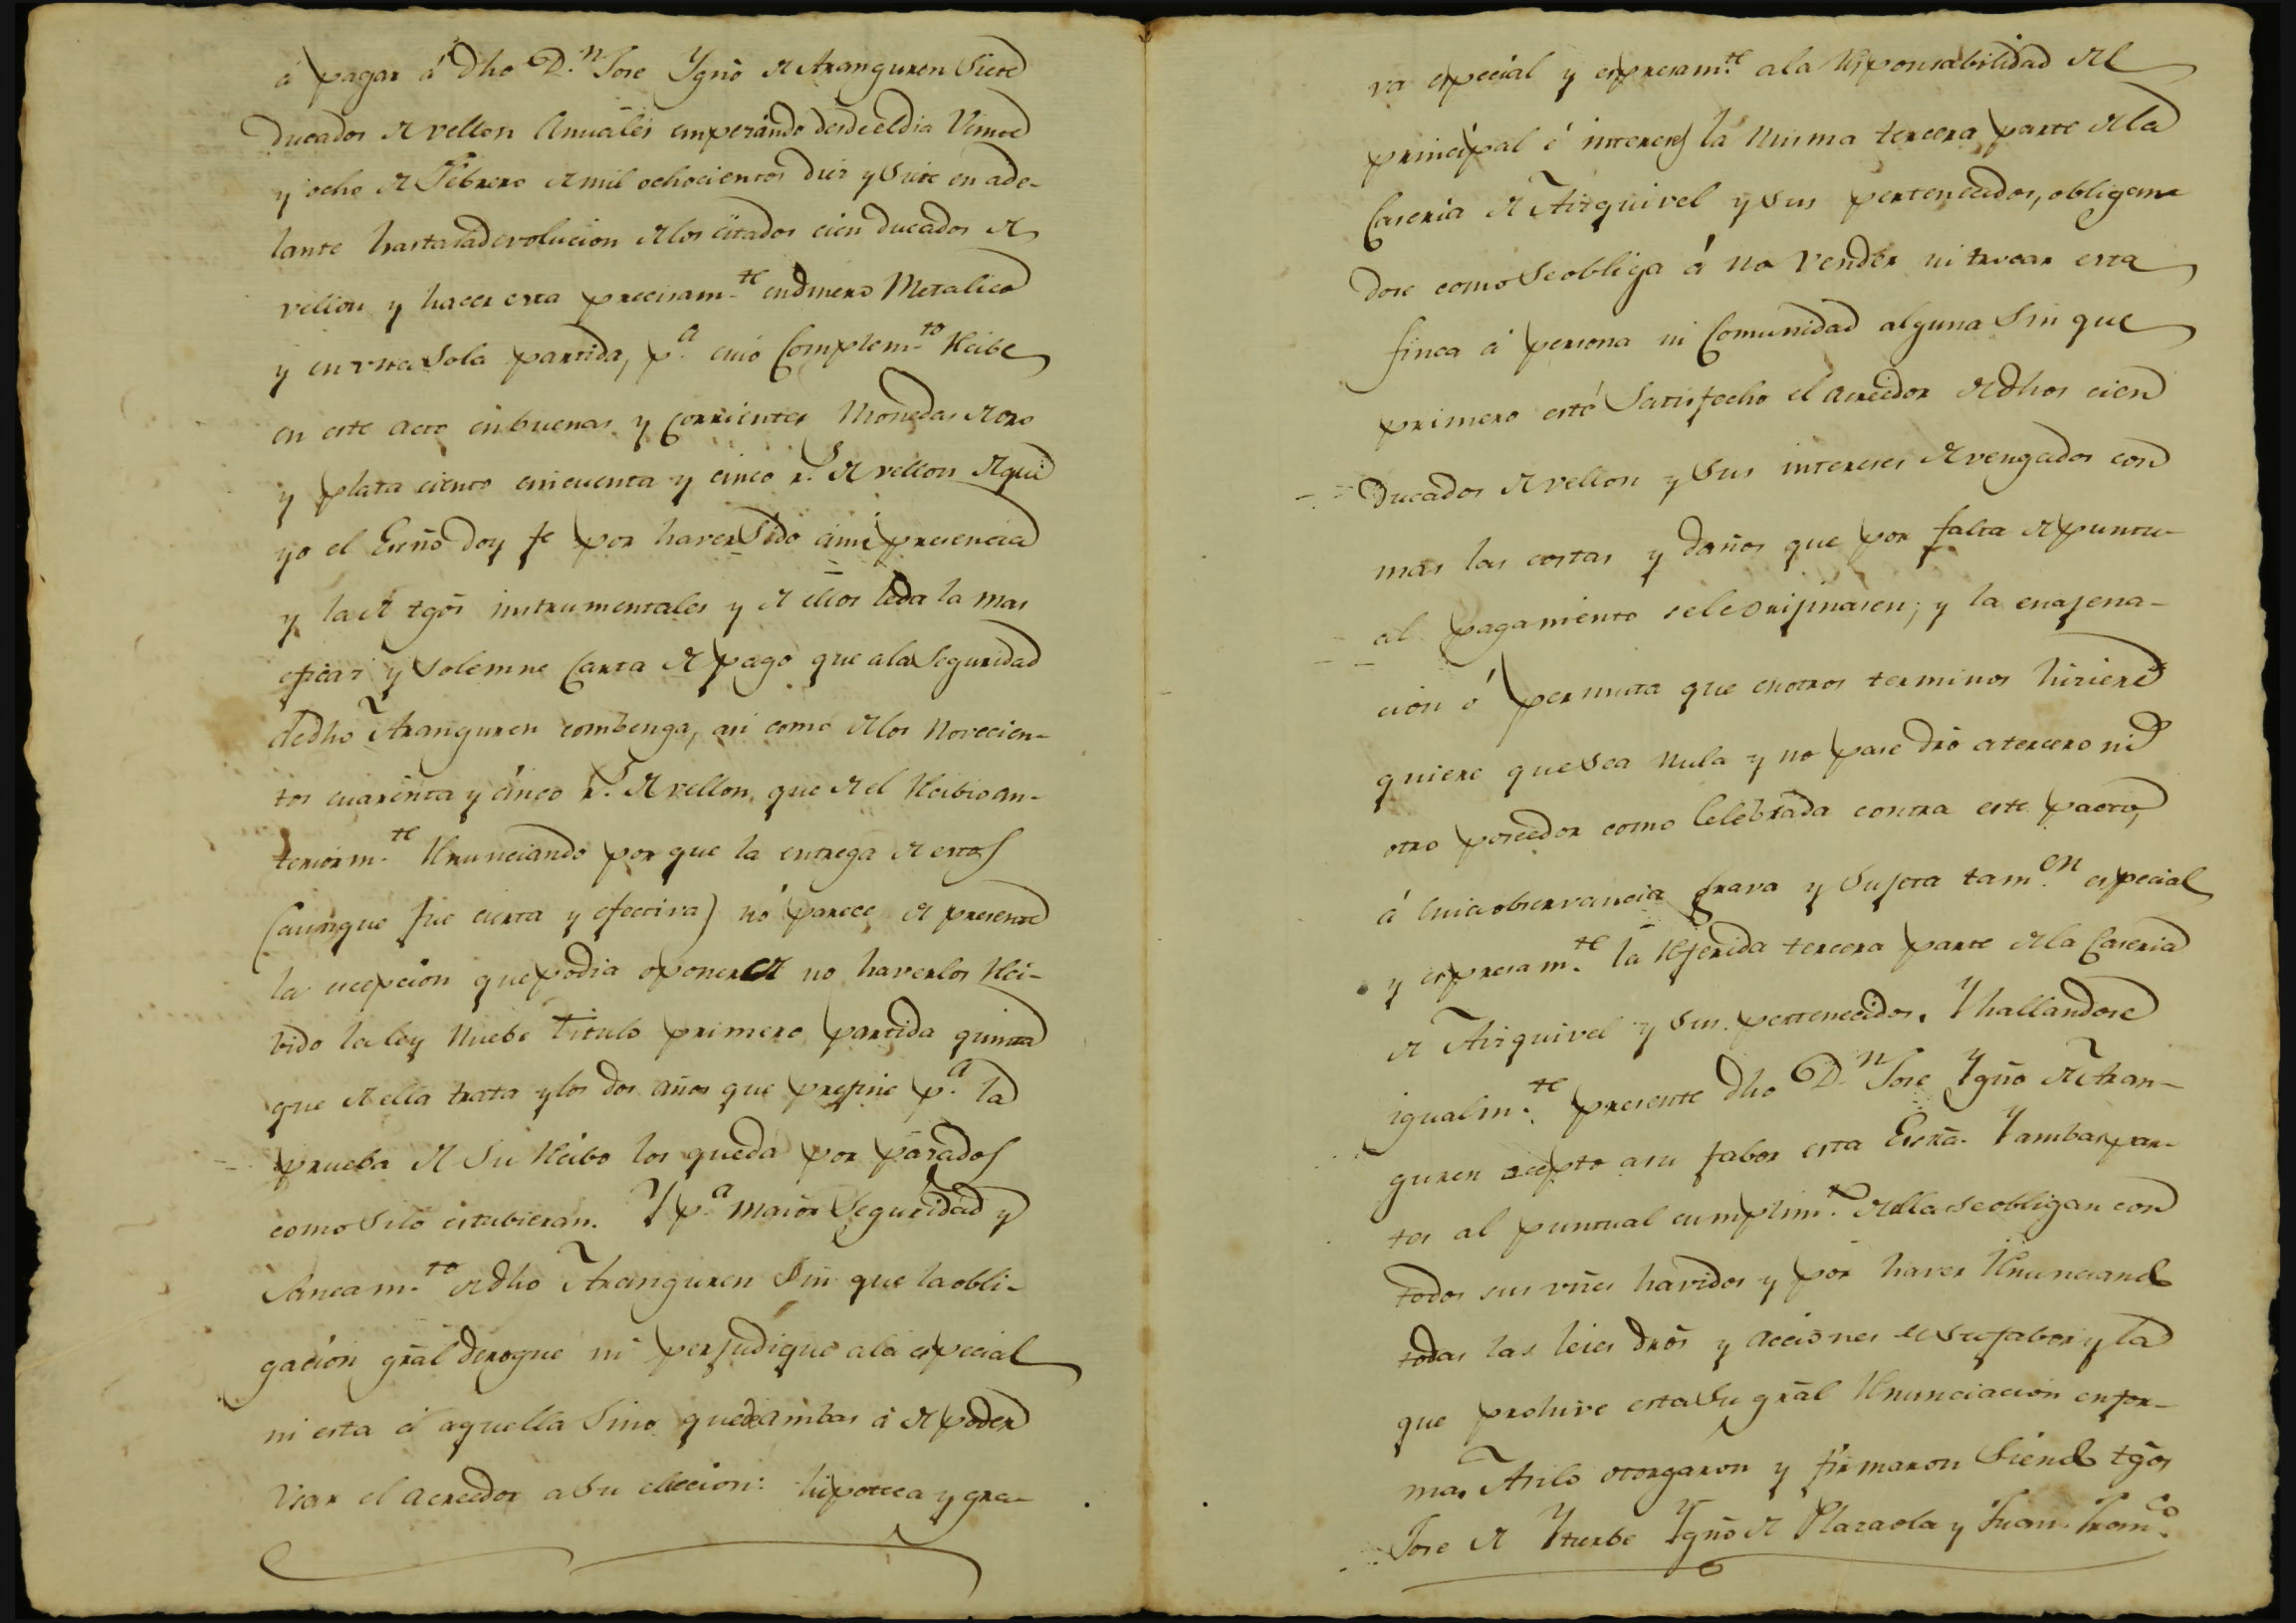 á pagar á dho D.n Jose Ygño de Aranguren Siete
Ducados de vellon Anuales empezando desde el dia Veinte
y ocho de Febrero de mil ochocientos diez y Siete en ade-
lante hasta la devolucion de los citados cien ducados de
vellon y hacer esta precisam.te en dinero Metalico
y en vna Sola partida, p.a cuio Complem.to Recibe
en este acto en buenas y Corrientes Monedas de oro
y plata ciento cincuenta y cinco r.s de vellon de que
yo el Esno doy fe por haver Sido ámi presencia
y la de tgos instrumentales y de ellos le da la mas
eficaz y Solemne Carta de pago que a la Seguridad
de dho Aranguren combenga, asi como de los Novecien-
tos cuarenta y cinco r.s de vellon que de el Recibio an-
teriorm.te Renunciando por que la entrega de estos
(aunque fue cierta y efectiva) nó parece de presente
la ecepcion que podia oponer de no haverlos Reci-
vido la ley Nuebe Titulo primero partida quinta
que de ella trata y los dos años que prefine p.a la
prueba de Su Recibo los queda por pasados
como Silo estubieran. Y p.a maior Seguridad y
Saneam.to de dho Aranguren Sin que la obli-
gacion gral derogue ni perjudique a la especial
ni esta á aquella Sino que de ambas á de poder
Vsar el acreedor a Su eleccion: hipoteca y gra-
va especial y espresam.te a la Responsabilidad del
principal é intereses la misma tercera parte de la
Caseria de Aizquivel y Sus pertenecidos, obligan-
dose como Se obliga á no Vender ni trocar esta
finca á persona ni Comunidad alguna Sin que
primero esté Satisfecho el acreedor de dhos cien
Ducados de vellon y Sus intereses devengados con
mas las costas y daños que por falta de puntu-
al pagamiento se le originasen; y la enagena-
cion ó permuta que en otros terminos hiciere
quiere que Sea Nula y no pase dro a tercero ni
otro poseedor como Celebrada contra este pacto,
á cuia observancia grava y Sujeta tam.en especial
y espresam.te la Referida tercera parte de la Caseria
de Aizquivel y Sus pertenecidos. Y hallandose
igualm.te presente dho D.n Jose Ygño de Aran-
guren acepto a su fabor esta Esra. Y ambas par-
tes al puntual cumplim.to de ella se obligan con
todos sus vnes havidos y por haver Renunciando
todas las leies dros y acciones de su fabor y la
que prohive esta Su gral Renunciacion en for-
ma. Asilo otorgaron y firmaron Siendo tgos
Jose de Yturbe Ygño de Plazaola y Juan Fran.co